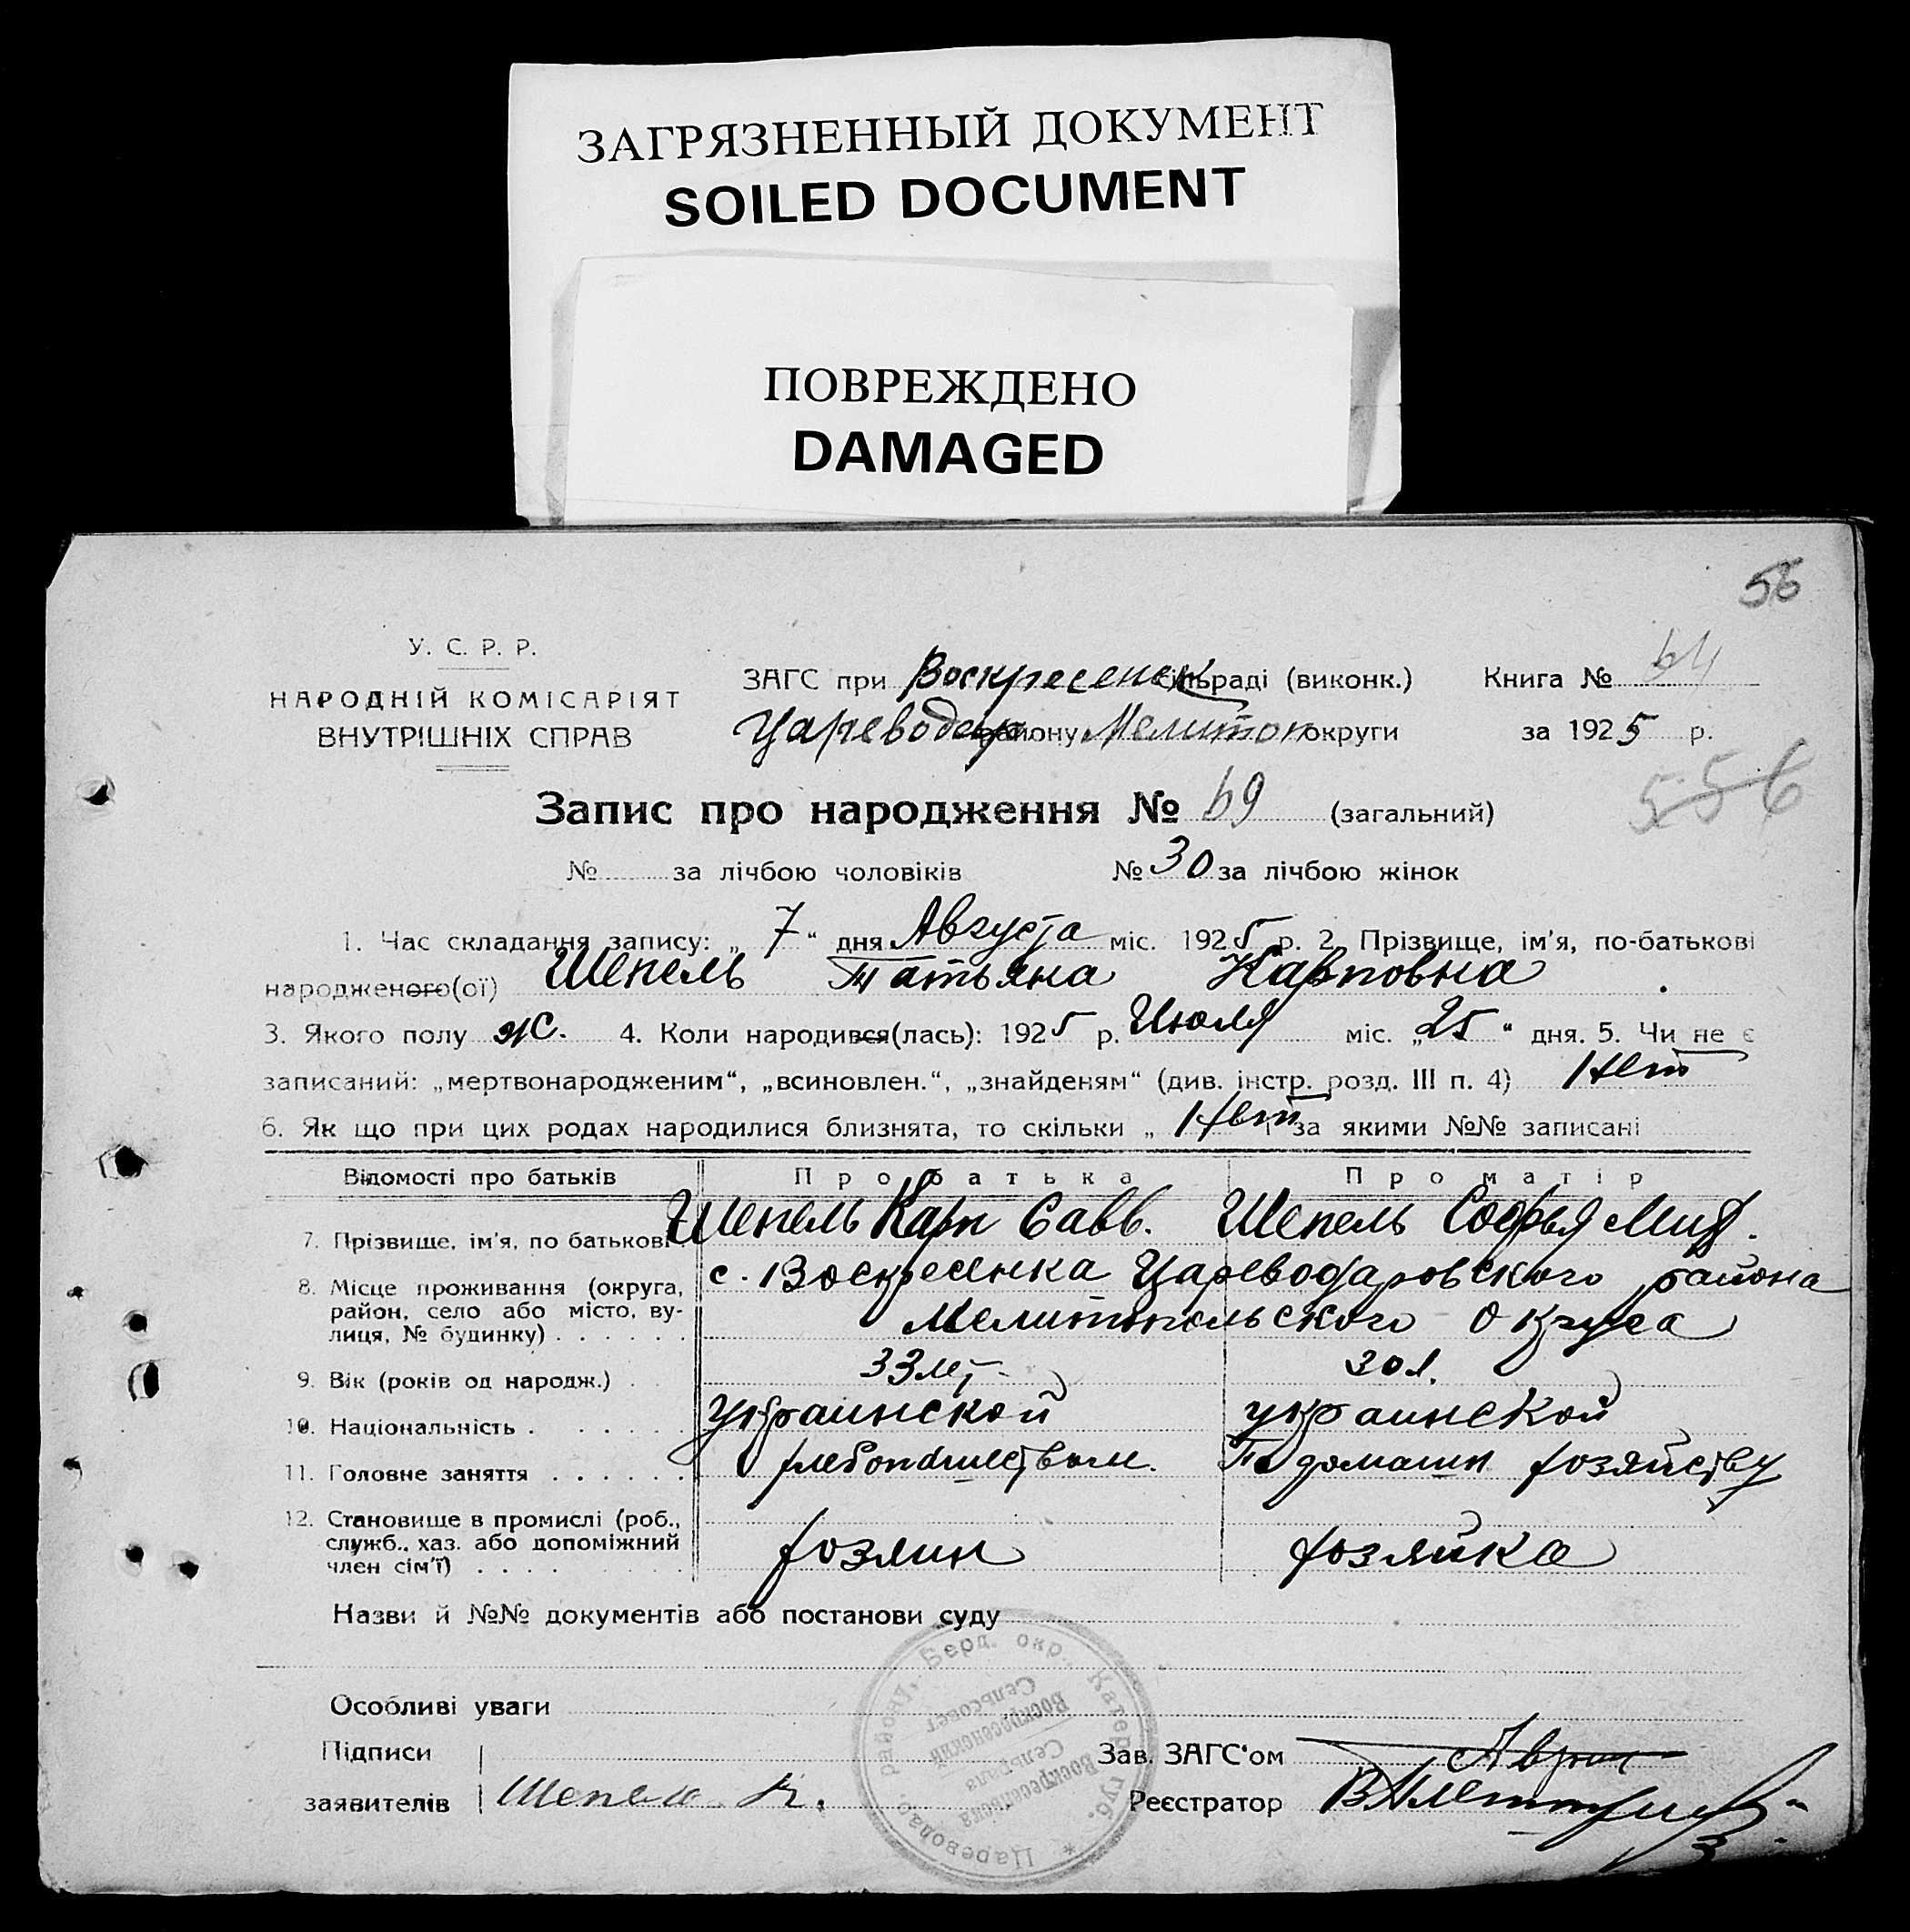 ЗАГРЯЗНЕННЫЙ ДОКУМЕНТ
SOILED DOCUMENT
ПОВРЕЖДЕНО
DAMAGED
56
У. С. Р. Р.
НАРОДНІЙ КОМІСАРІЯТ
ВНУТРІШНІХ СПРАВ
ЗАГС при Воскресенск сільраді (виконк.) Книга №
Цареводар району Мелитоп округи за 1925 р.
556
Запис про народження № 69 (загальний)
№ за лічбою чоловіків № 30 за лічбою жінок
1. Час складання запису: „ 7 “ дня Августа міс. 1925 р. 2. Прізвище, ім'я, по-батькові
народженого(ої) Шепель Татьяна Карповна
3. Якого полу ж. 4. Коли народився(лась): 1925 р. Июля міс. „25“ дня. 5. Чи не є
записаний: „мертвонародженим“, „всиновлен.“, „знайденям“ (див. інстр. розд. III п. 4) Нет
6. Як що при цих родах народилися близнята, то скільки „ Нет і за якими №№ записані
Відомості про батьків Про батька Про матір
7. Прізвище, ім'я, по батькові. Шепель Карп Савв. Шепель Софья Мит.
8. Місце проживання (округа, район, село або місто, вулиця, № будинку) с. Воскресенка Цареводаровского района
Мелитопольского Округа
9. Вік (років од народж.) 33 лет 30 л.
10. Національність украинской украинской
11. Головне заняття хлебопашеством По домашн хозяйству
12. Становище в промислі (роб., служб., хаз. або допоміжний член сім'ї) хозяин хозяйка
Назви й №№ документів або постанови суду
Особливі уваги
Підписи
заявителів Шепель К.
Зав. ЗАГС'ом
Реєстратор
Царевода району, Берд. окр., Катер. губ.
Воскресенська Сельрада
Воскресенский Сельсовет